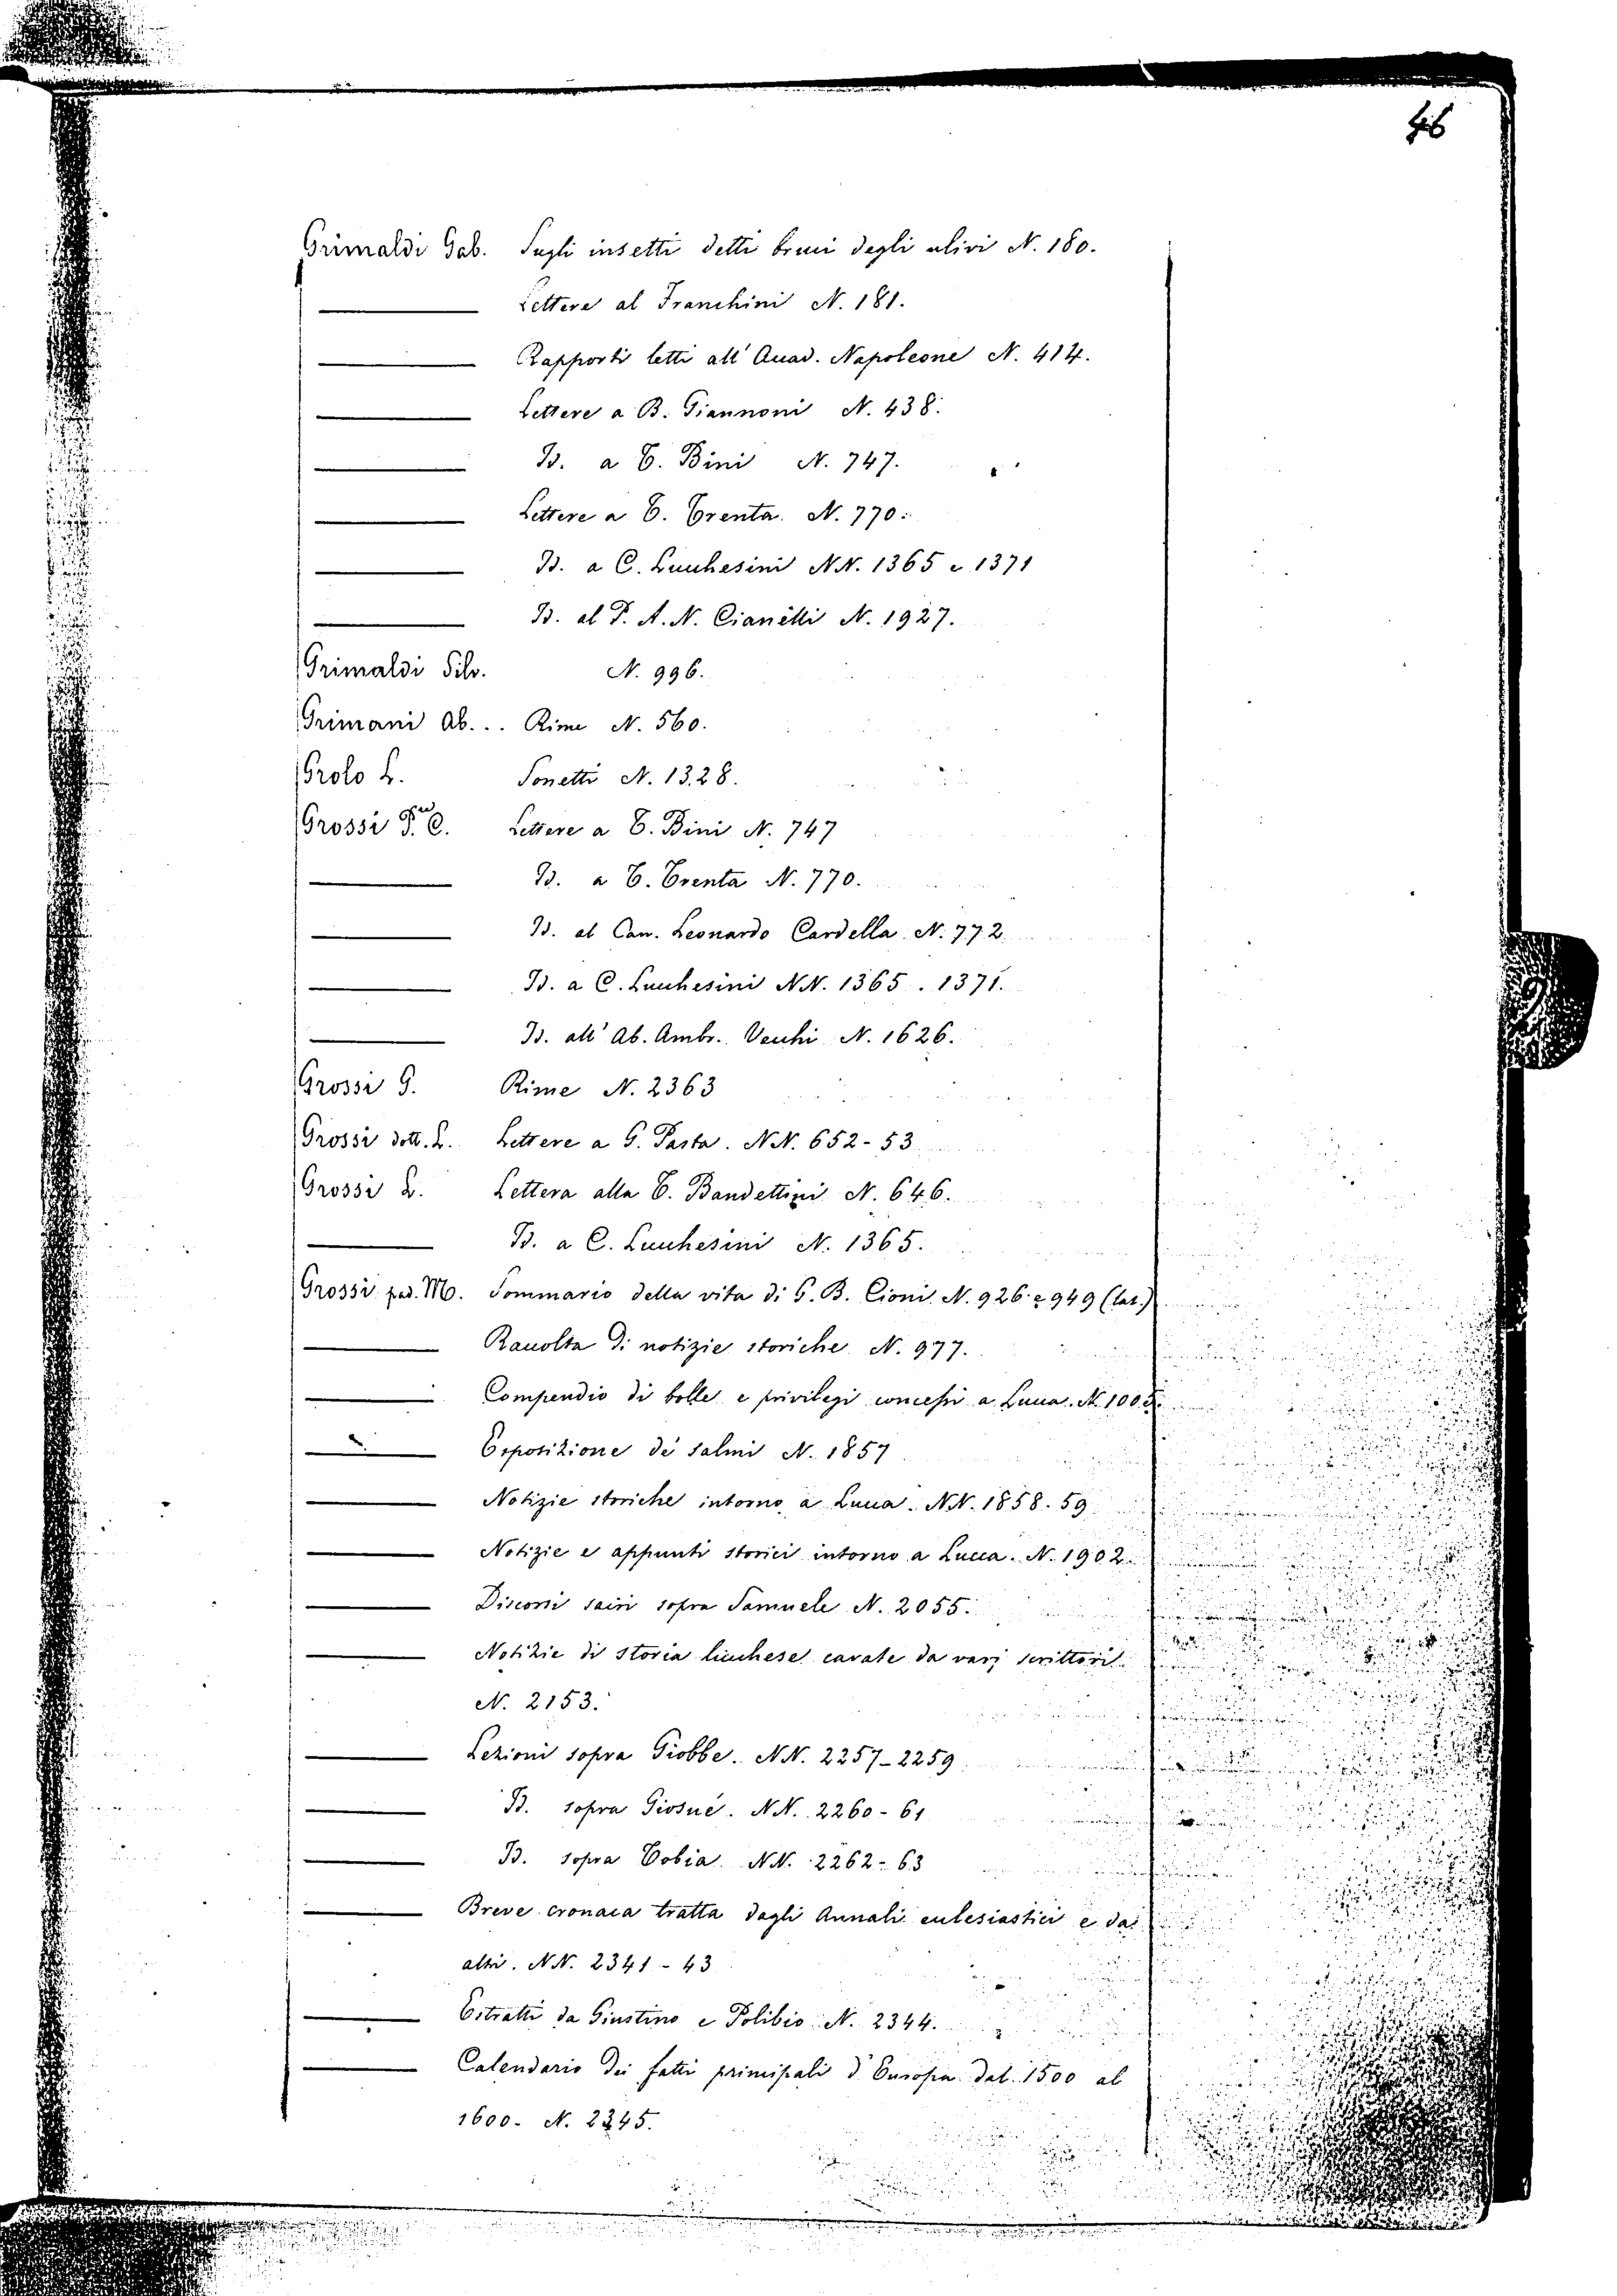 46
Grimaldi Gab. Sugli insetti detti bruci degli ulivi N. 180.
Lettere al Franchini N. 181.
Rapporti letti all' Accad. Napoleone N. 414.
Lettere a B. Giannoni N. 438.
Id. a T. Bini N. 747.
Lettere a T. Trenta. N. 770.
Id. a C. Lucchesini NN. 1365 e 1371
Id. al P. A. N. Cianelli N. 1927.
Grimaldi Silv. N. 996.
Grimani Ab... Rime N. 560.
Grolo L. Sonetti N. 1328.
Grossi C. Lettere a T. Bini N. 747
Id. a T. Trenta N. 770.
Id. al Can. Leonardo Cardella N. 772
Id. a C. Lucchesini NN. 1365. 1371.
Id. all' Ab. Ambr. Vecchi N. 1626.
Grossi G. Rime N. 2363
Grossi dott. L. Lettere a G. Pasta. NN. 652-53
Grossi L. Lettera alla T. Bandettini N. 646.
Id. a C. Lucchesini N. 1365.
Grossi pad. M. Sommario della vita di G. B. Cioni. N. 926 e 949 (lat.)
Raccolta di notizie storiche N. 977.
Compendio di bolle e privilegi concessi a Lucca. N. 1005.
Esposizione de' salmi N. 1857
Notizie storiche intorno a Lucca. NN. 1858-59
Notizie e appunti storici intorno a Lucca. N. 1902.
Discorsi sacri sopra Samuele N. 2055.
Notizie di storia lucchese cavate da varj scrittori
N. 2153.
Lezioni sopra Giobbe. NN. 2257-2259
Id. sopra Giosuè. NN. 2260-61
Id. sopra Tobia NN. 2262-63
Breve cronaca tratta dagli Annali ecclesiastici e da
altri. NN. 2341-43
Estratti da Giustino e Polibio N. 2344.
Calendario dei fatti principali d'Europa dal 1500 al
1600. N. 2345.